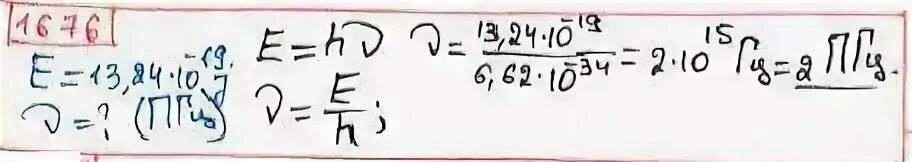 1676
E = 13,24·10⁻¹⁹ Дж
ν = ? (ПГц)
E = hν
ν = E/h;
ν = 13,24·10⁻¹⁹ / 6,62·10⁻³⁴ = 2·10¹⁵ Гц = 2 ПГц.